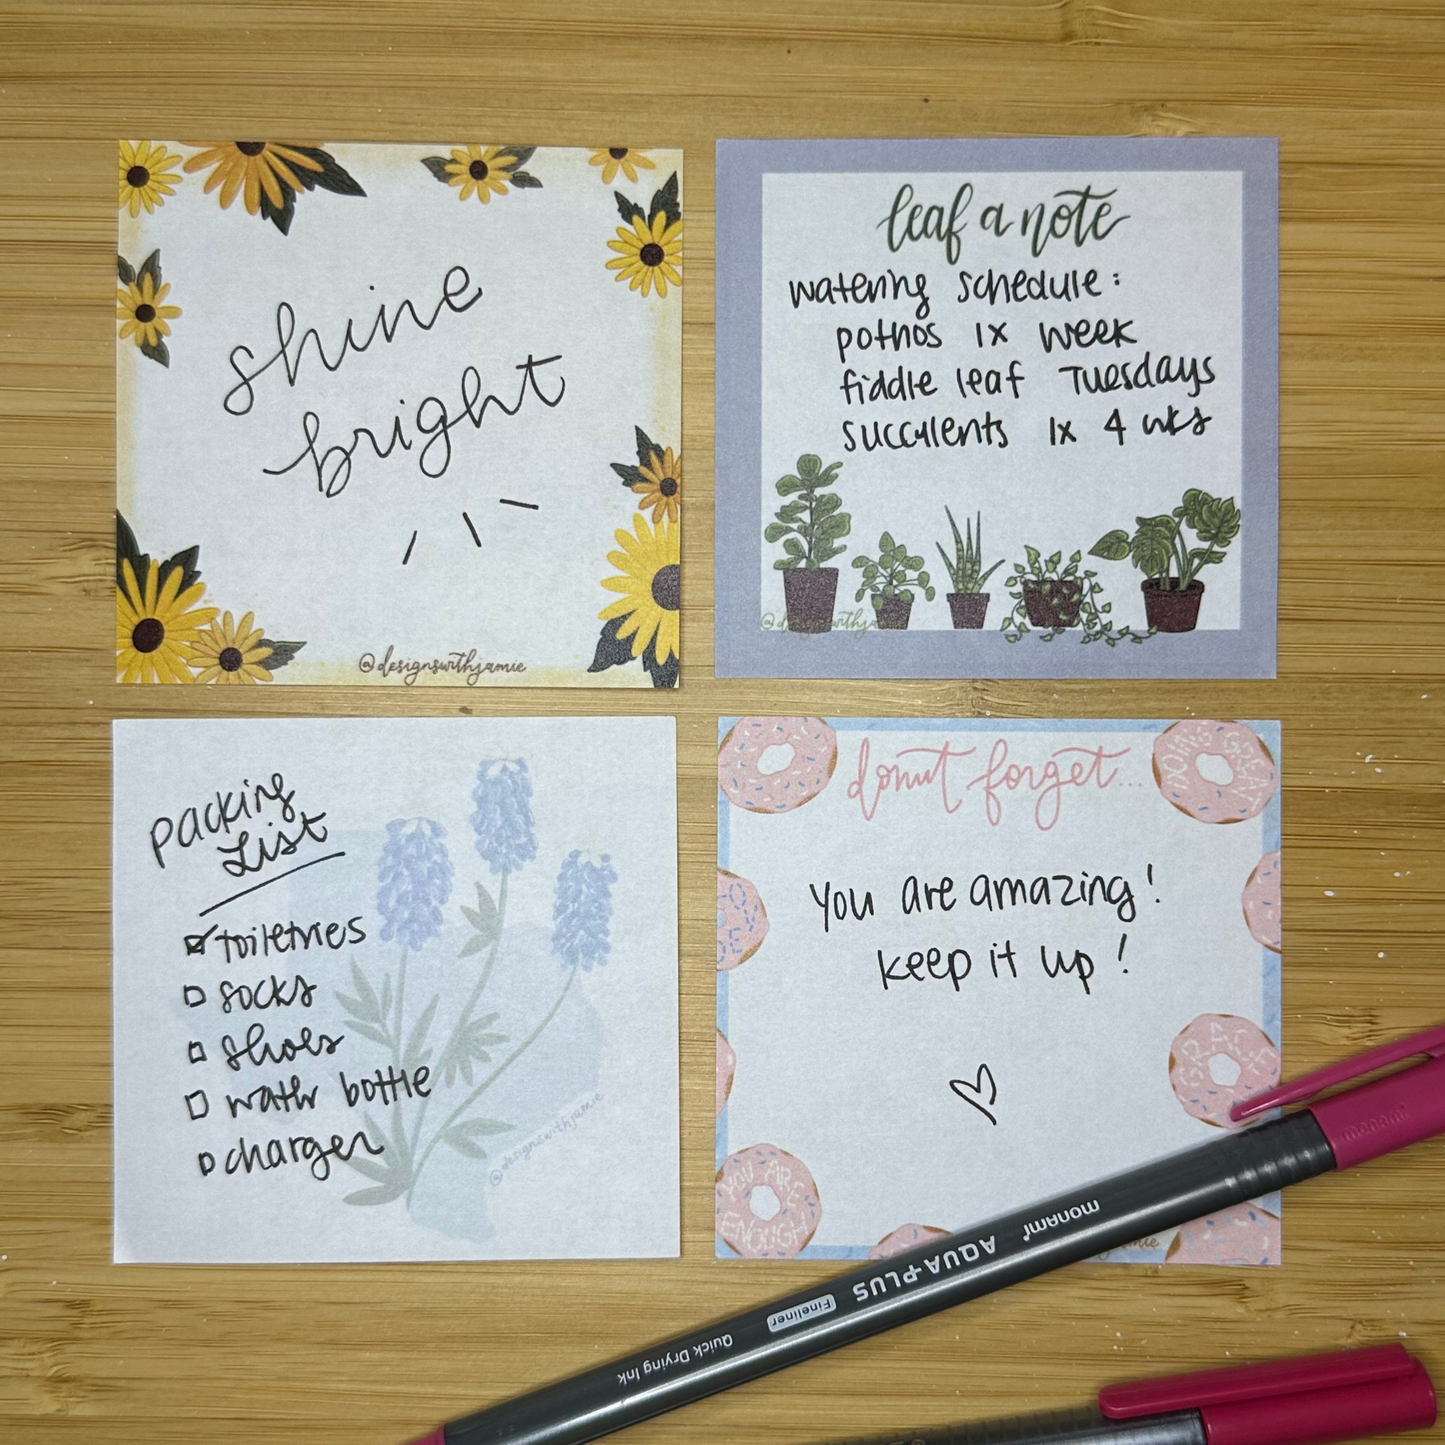 shine
bright
@designswithjamie
leaf a note
watering schedule:
pothos 1x week
fiddle leaf Tuesdays
succulents 1x 4 wks
@designswithja
Packing
List
toiletries
socks
shoes
watr bottle
charger
@designswithjamie
donut forget...
DOING GREAT
you are amazing!
keep it up!
GRACE
YOU ARE
ENOUGH
monami
monami
AQUA-PLUS
Fineliner
Quick Drying Ink